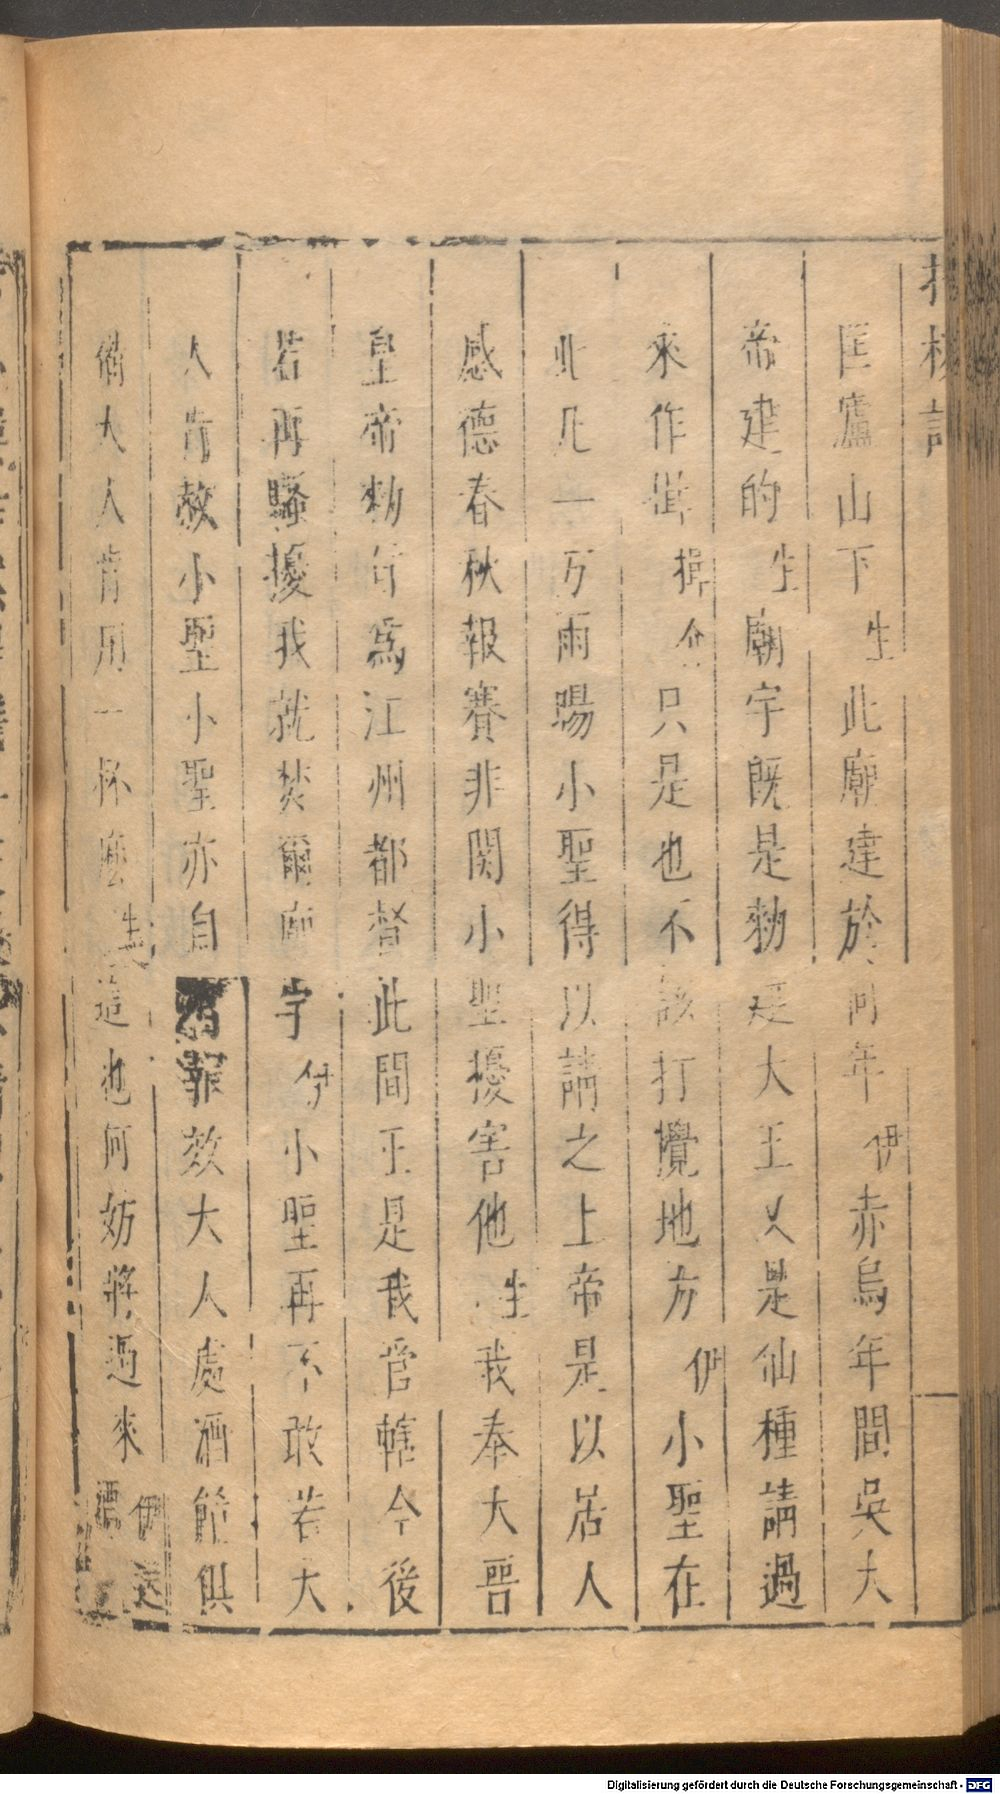 匡廬山下生此廟建於何年伊赤烏年間吳大
帝建的生廟宇既是勑建大王又是仙種請過
來作揖揖介只是也不該打攪地方伊小聖在
此凡一方雨暘小聖得以請之上帝是以居人
感德春秋報賽非関小聖擾害他生我奉大晉
皇帝勑命爲江州都督此間正是我管轄今後
若再騷擾我就焚爾廟宇伊小聖再不敢若大
人肯赦小聖小聖亦自有報效大人處酒餚俱
備大人肯用一杯麽生這也何妨將過來伊送酒
Digitalisierung gefördert durch die Deutsche Forschungsgemeinschaft - DFG